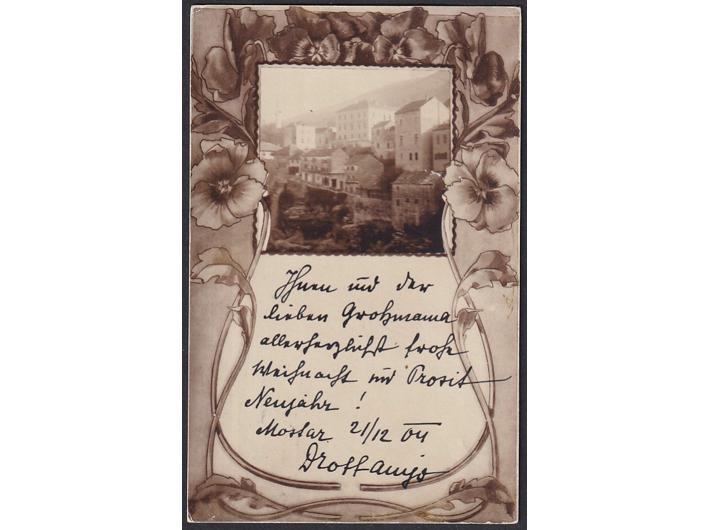 Ihnen und der
lieben Großmama
allerherzlichst frohe
Weihnacht und Prosit
Neujahr !
Mostar 21/12 04